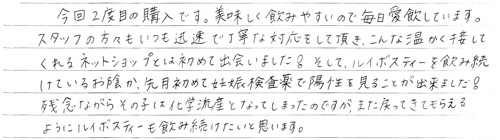 今回2度目の購入です。美味しく飲みやすいので毎日愛飲しています。
スタッフの方々もいつも迅速で丁寧な対応をして頂き、こんな温かく接して
くれるネットショップとは初めて出会いました!そして、ルイボスティーを飲み続
けているお陰か、先月初めて妊娠検査薬で陽性を見ることが出来ました!
残念ながらその子は化学流産となってしまったのですが、また戻ってきてもらえる
ようにルイボスティーも飲み続けたいと思います。